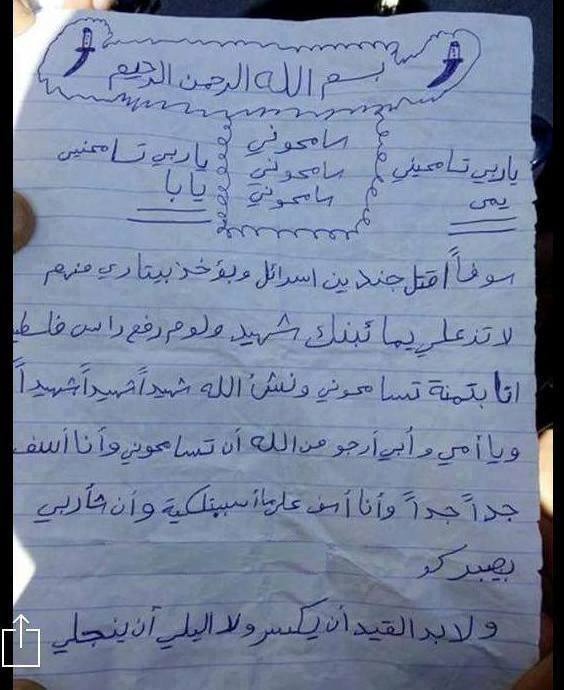 بسم الله الرحمن الرحيم
سامحوني
سامحوني
سامحوني
ياربي تسامحيني
يمى
ياربي تسامحنيي
يابا
سوفاً اقتل جندين اسرائل وبؤخذ بيتاري منهم
لا تزعلي يما ئبنك شهيد ولوم رفع راس فلسط
انا بتمنة تسامحوني ونشُ الله شهيداً شهيداً شهيداً
ويا أمي وأبي أرجو من الله أن تسامحوني وأنا أسف
جداً جداً وأنا أسف على وأن شأربي
بصبركو
ولا بد القيد أن يكسر ولا اليلي أن ينجلي